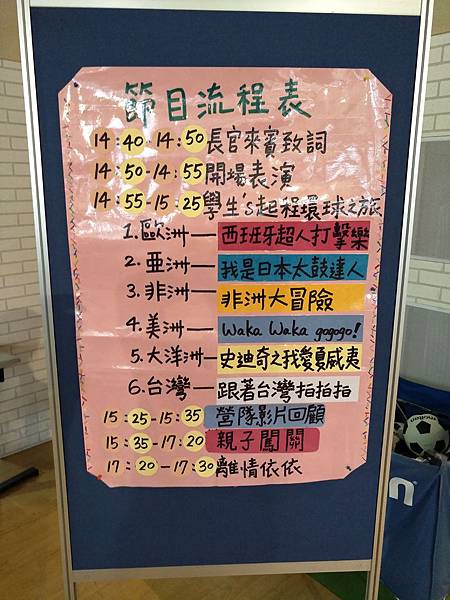 節目流程表
14:40-14:50長官來賓致詞
14:50-14:55開場表演
14:55-15:25學生's起程環球之旅
1.歐洲—西班牙超人打擊樂
2.亞洲—我是日本太鼓達人
3.非洲—非洲大冒險
4.美洲—Waka Waka gogogo!
5.大洋洲—史迪奇之我愛夏威夷
6.台灣—跟著台灣拍拍拍
15:25-15:35營隊影片回顧
15:35-17:20親子闖關
17:20-17:30離情依依